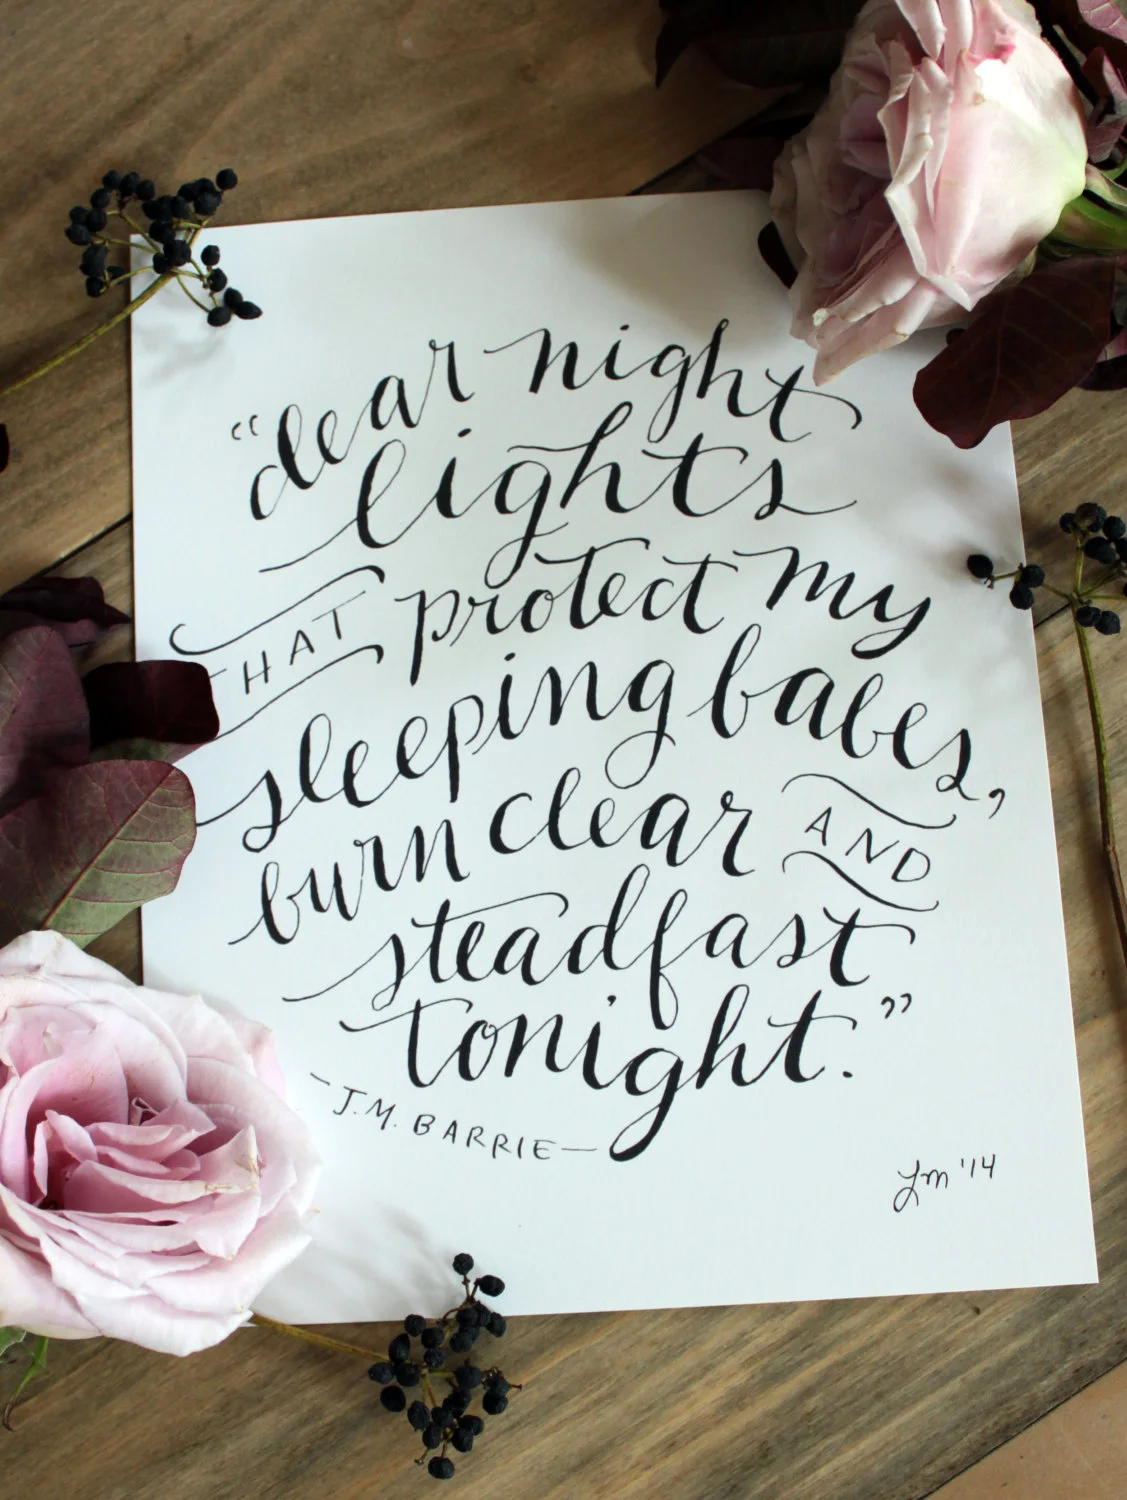 “dear night
lights
THAT protect my
sleeping babes,
burn clear AND
steadfast
tonight.”
- J.M. BARRIE —
Lm '14